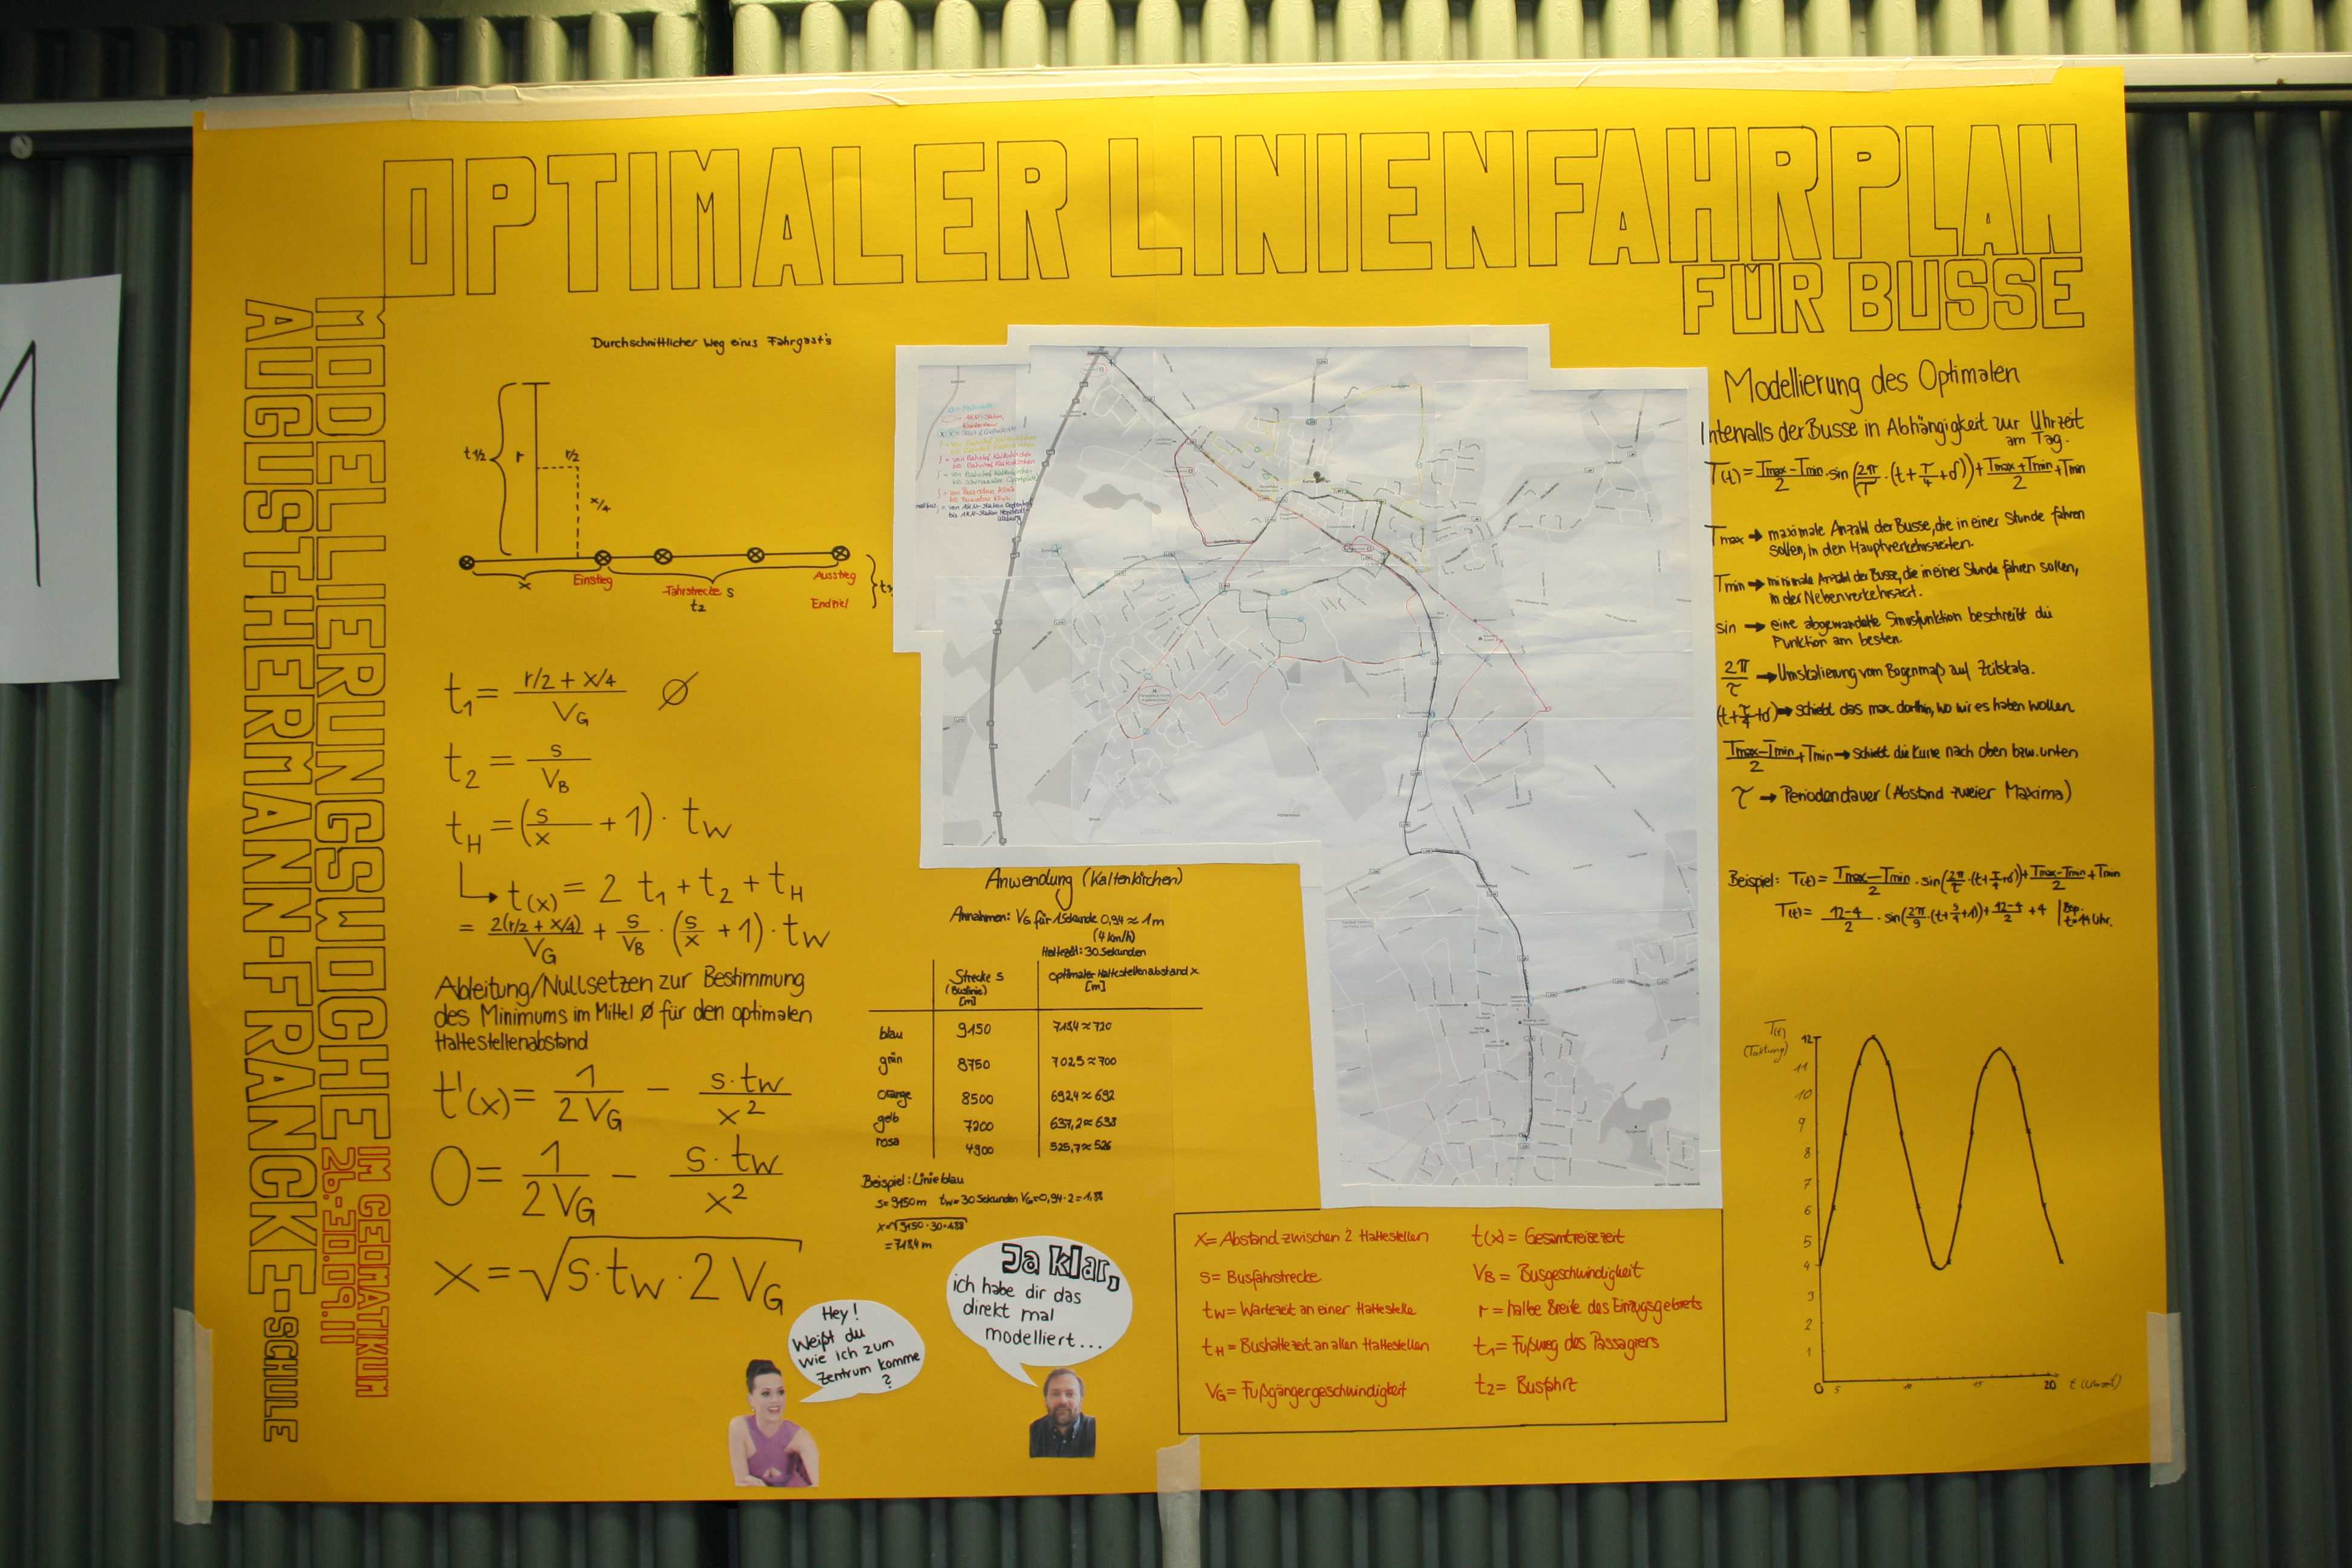 OPTIMALER LINIENFAHRPLAN
FÜR BUSSE
MODELLIERUNGSWOCHE IM GEOMATIKUM
26.-30.09.11
AUGUST-HERMANN-FRANCKE-SCHULE
Durchschnittlicher Weg eines Fahrgast's
t1/2
r
r/2
x/4
x
Einstieg
Fahrstrecke s
t2
Ausstieg
Endziel
t₁ = (r/2 + x/4) / VG Ø
t₂ = s / VB
tH = (s/x + 1) · tw
↳ t(x) = 2 t₁ + t₂ + tH
= 2(r/2 + x/4) / VG + s/VB · (s/x + 1) · tw
Ableitung/Nullsetzen zur Bestimmung
des Minimums im Mittel Ø für den optimalen
Haltestellenabstand
t'(x) = 1 / 2VG − s·tw / x²
0 = 1 / 2VG − s·tw / x²
x = √(s·tw·2 VG)
Anwendung (Kaltenkirchen)
Annahmen: VG für 1 Sekunde 0,94 ≈ 1 m
(4 km/h)
Haltezeit: 30 Sekunden
Strecke s (Buslinie) [m] optimaler Haltestellenabstand x [m]
blau 9150 718,4 ≈ 720
grün 8750 702,5 ≈ 700
orange 8500 692,4 ≈ 692
gelb 7200 637,2 ≈ 638
rosa 4900 525,7 ≈ 526
Beispiel: Linie blau
s = 9150 m tw = 30 Sekunden VG = 0,94 · 2 = 1,88
x = √(9150 · 30 · 1,88)
= 718,4 m
Hey!
Weißt du
wie ich zum
Zentrum komme
?
Ja klar,
ich habe dir das
direkt mal
modelliert...
x = Abstand zwischen 2 Haltestellen
s = Busfahrstrecke
tw = Wartezeit an einer Haltestelle
tH = Bushaltezeit an allen Haltestellen
VG = Fußgängergeschwindigkeit
t(x) = Gesamtreisezeit
VB = Busgeschwindigkeit
r = halbe Breite des Einzugsgebiets
t₁ = Fußweg des Passagiers
t₂ = Busfahrt
Modellierung des Optimalen
Intervalls der Busse in Abhängigkeit zur Uhrzeit
am Tag.
T(t) = (Tmax − Tmin)/2 · sin(2π/τ · (t + τ/4 + δ)) + (Tmax + Tmin)/2 + Tmin
Tmax → maximale Anzahl der Busse, die in einer Stunde fahren
sollen, in den Hauptverkehrszeiten.
Tmin → minimale Anzahl der Busse, die in einer Stunde fahren sollen,
in der Nebenverkehrszeit.
sin → eine abgewandelte Sinusfunktion beschreibt die
Funktion am besten.
2π/τ → Umskalierung vom Bogenmaß auf Zeitskala.
(t + τ/4 + δ) → schiebt das max dorthin, wo wir es haben wollen
(Tmax − Tmin)/2 + Tmin → schiebt die Kurve nach oben bzw. unten
τ → Periodendauer (Abstand zweier Maxima)
Beispiel: T(t) = (Tmax − Tmin)/2 · sin(2π/τ · (t + τ/4 + δ)) + (Tmax − Tmin)/2 + Tmin
T(t) = (12 − 4)/2 · sin(2π/9 · (t + 9/4 + 1)) + (12 − 4)/2 + 4
T(t)
(Taktung)
12
11
10
9
8
7
6
5
4
3
2
1
0 5 10 15 20 t (Uhrzeit)